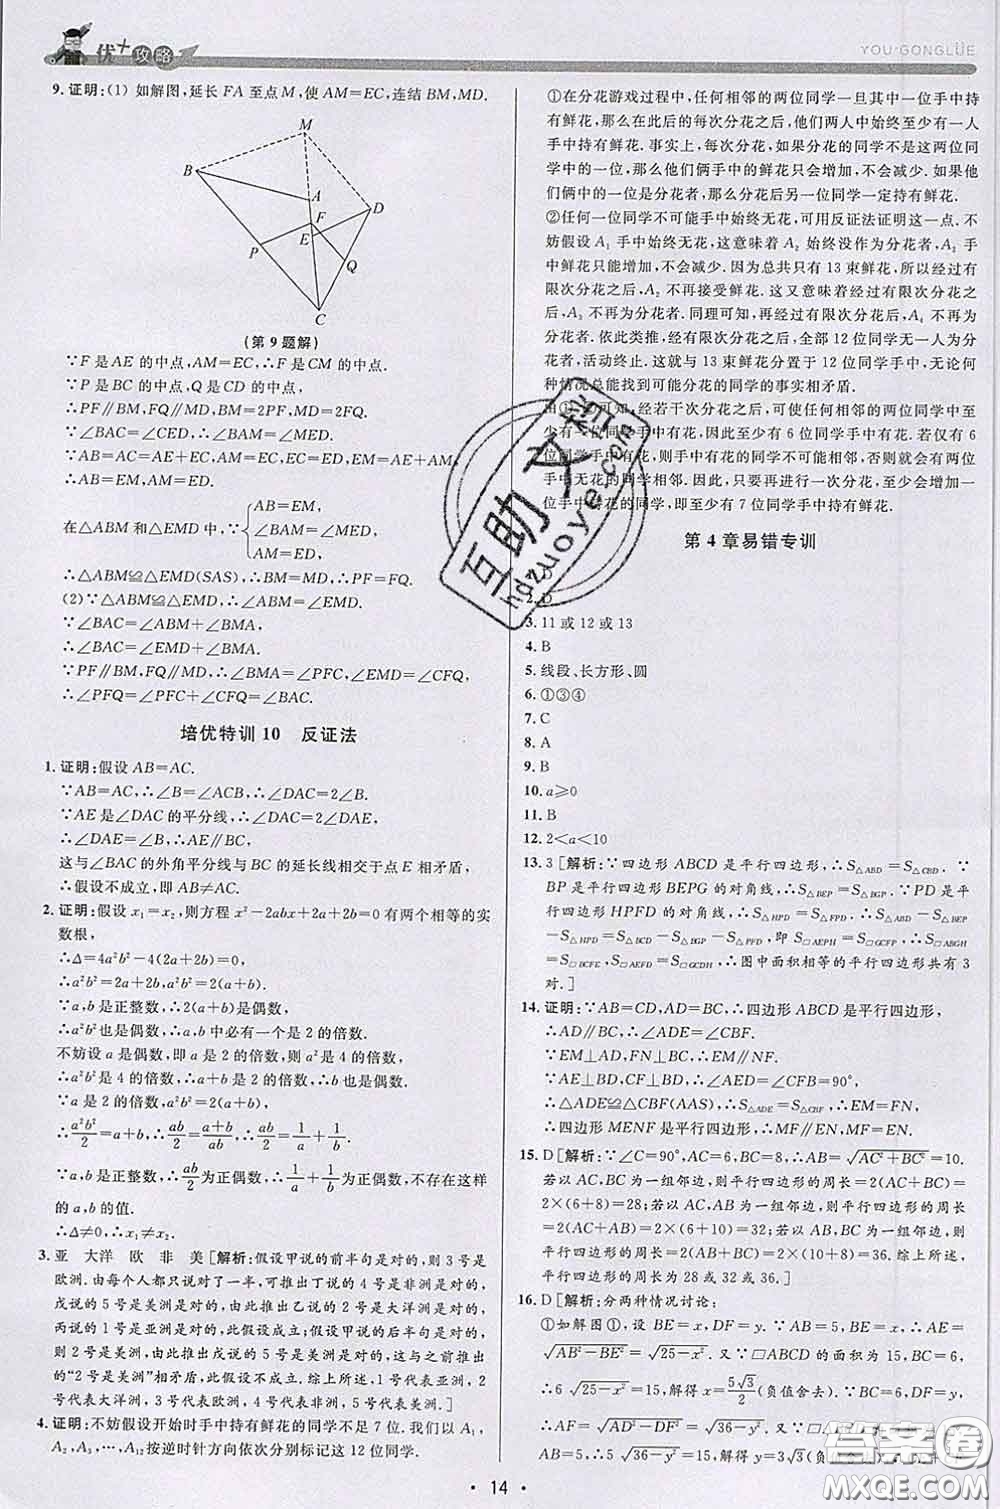 优+攻略
YOU·GONGLÜE
9. 证明:(1) 如解图,延长 FA 至点 M,使 AM=EC,连结 BM,MD.
M
B
A
D
F
E
P
Q
C
(第 9 题解)
∵F 是 AE 的中点,AM=EC,∴F 是 CM 的中点.
∵P 是 BC 的中点,Q 是 CD 的中点,
∴PF∥BM,FQ∥MD,BM=2PF,MD=2FQ.
∵∠BAC=∠CED,∴∠BAM=∠MED.
∵AB=AC=AE+EC,AM=EC,EC=ED,EM=AE+AM,
∴AB=EM,AM=ED.
在△ABM 和△EMD 中,∵
AB=EM,
∠BAM=∠MED,
AM=ED,
∴△ABM≌△EMD(SAS),∴BM=MD,∴PF=FQ.
(2)∵△ABM≌△EMD,∴∠ABM=∠EMD,
∴∠BAC=∠ABM+∠BMA=∠EMD+∠BMA.
∵PF∥BM,FQ∥MD,∴∠BMA=∠PFC,∠EMD=∠CFQ,
∴∠PFQ=∠PFC+∠CFQ=∠BAC.
培优特训 10 反证法
1. 证明:假设 AB=AC.
∵AB=AC,∴∠ABC=∠ACB.
∵AE是∠DAC 的平分线,∴∠DAE=∠EAC,
∴∠DAE=∠ABC,∴AE∥BC,
这与∠BAC 的外角平分线与 BC 的延长线相交于点 E 相矛盾,
∴假设不成立,即 AB≠AC.
2. 证明:假设 x₁=x₂,则方程 x²−2abx+2a+2b=0 有两个相等的实
数根,
∴Δ=4a²b²−4(2a+2b)=0,
∴a²b²=2a+2b,∴a²b²=2(a+b).
∵a,b 都是正整数,∴2(a+b)是偶数,
∴a²b²也是偶数,∴a,b 中必有一个是 2 的倍数.
不妨设 a 是偶数,即 a 是 2 的倍数,则 a²是 4 的倍数,
∴a²b²是 4 的倍数,∴a²b²=2(a+b)是 4 的倍数.
∵a 是 2 的倍数,a²b²=2(a+b),
∴a²b²/2=a+b,∴ab/2=(a+b)/ab,∴ab/2=1/a+1/b.
∵a,b 是正整数,∴ab/2为正整数,∴1/a+1/b为正整数,不存在这样
的 a,b 的值.
∴Δ≠0,∴x₁≠x₂.
3. 亚 大洋 欧 非 美 [解析:假设甲说的前半句是对的,则 3 号是
欧洲.由每个人都只对了一半,可推出丁说的 4 号是非洲是对的,
戊说的 5 号是美洲是对的,由此推出乙说的 2 号是大洋洲是对的,
丙说的 1 号是亚洲是对的,假设成立.假设甲说的后半句是对的,
则 2 号是美洲,由此推出戊说的 5 号是美洲是对的,这与假设得出
的“2 号是美洲”相矛盾,∴假设不成立.综上所述,1 号代表亚洲,
2 号代表大洋洲,3 号代表欧洲,4 号代表非洲,5 号代表美洲.]
4. 证明:不妨假设开始时手中持有鲜花的同学不足 7 位.我们以 A₁,
A₂,A₃,…,A₁₂按逆时针方向依次分别标记这 12 位同学.
①在分花游戏过程中,任何相邻的两位同学一旦其中一位手中持
有鲜花,那么在此后的每次分花之后,他们两人中始终至少有一人
手中持有鲜花.事实上,每次分花,如果分花的同学不是这两位同
学中的一位,那么他们俩手中的鲜花只会增加,不会减少.如果他
们俩中的一位是分花者,那么分花后另一位同学一定持有鲜花.
②任何一位同学不可能手中始终无花,可用反证法证明这一点.不
妨假设 A₁ 手中始终无花,这意味着 A₂ 始终没作为分花者,A₂ 手
中鲜花只能增加,不会减少.因为总共只有 13 束鲜花,所以经过有
限次分花之后,A₂ 不再接受鲜花.这又意味着经过有限次分花之
后,A₃ 不再持有鲜花.同理可知,再经过有限次分花之后,A₄ 不再
持有鲜花.依此类推,经有限次分花之后,全部 12 位同学无一为分
花者,活动终止.这就与 13 束鲜花分置于 12 位同学手中,无论何
种情况总能找到可分花的同学的事实相矛盾.
由①②可知,经若干次分花之后,可使任何相邻的两位同学中至
少有一位同学手中持有鲜花,因此至少有 6 位同学手中有花.若仅有 6
位同学手中有花,则手中有花的同学不可能相邻,否则就会有相邻的两位
手中无花的同学,矛盾.因此,只要再进行一次分花,可使至少有一对相邻
的同学手中同时持有鲜花的同学,即至少有 7 位同学手中持有鲜花.
第 4 章易错专训
2. D
3. 11 或 12 或 13
4. B
5. 线段、长方形、圆
6. ①③④
7. C
8. A
9. B
10. a≥0
11. B
12. 2<a<10
13. 3 [解析:∵四边形 ABCD 是平行四边形,∴S△ABD=S△CBD.∵
BP 是平行四边形 BEPG 的对角线,∴S△BEP=S△BGP.∵PD 是平
行四边形 HPFD 的对角线,∴S△HPD=S△FPD.∴S△ABD−S△BEP
−S△HPD=S△BCD−S△BGP−S△PFD,即S□AEPH=S□GCFP,∴S□ABGH
=S□BCFE,S□AEFD=S□HGCD,∴图中面积相等的平行四边形共有 3
对.]
14. 证明:∵AB=CD,AD=BC,∴四边形 ABCD 是平行四边形,
∴AD∥BC,∴∠ADE=∠CBF.
∵EM⊥AD,FN⊥BC,∴EM∥FN.
∵AE⊥BD,CF⊥BD,∴∠AED=∠CFB=90°,
∴△ADE≌△CBF(AAS),∴S△ADE=S△CBF,∴EM=FN,
∴四边形 MENF 是平行四边形,∴MF∥EN,MF=EN.
15. D [解析:∵∠C=90°,AC=6,BC=8,∴AB=√(AC²+BC²)=10.
若以 AC 和 BC 为一组邻边,则平行四边形的周长=2(AC+BC)
=2×(6+8)=28;若以 AC 和 AB 为一组邻边,则平行四边形的周长=
2(AC+AB)=2×(6+10)=32;若以 BC 和 AB 为一组邻边,
则平行四边形的周长=2(AB+BC)=2×(10+8)=36.综上所述,
平行四边形的周长为 28 或 32 或 36.]
16. D [解析:分两种情况讨论:
①如解图①,设 BE=x,DF=y.∵AB=5,BE=x,∴AE=
√(AB²−BE²)=√(25−x²).又∵□ABCD 的面积为 15,BC=6,
∴6√(25−x²)=15,解得 x=5√3/2(负值舍去).∵AD=6,DF=y,
∴AF=√(AD²−DF²)=√(36−y²).又∵□ABCD 的面积为 15,
AB=5,∴5√(36−y²)=15,解得 y=3√3(负值舍去).
· 14 ·
互助文档
hdzuoye.com
答案圈
MXQE.COM